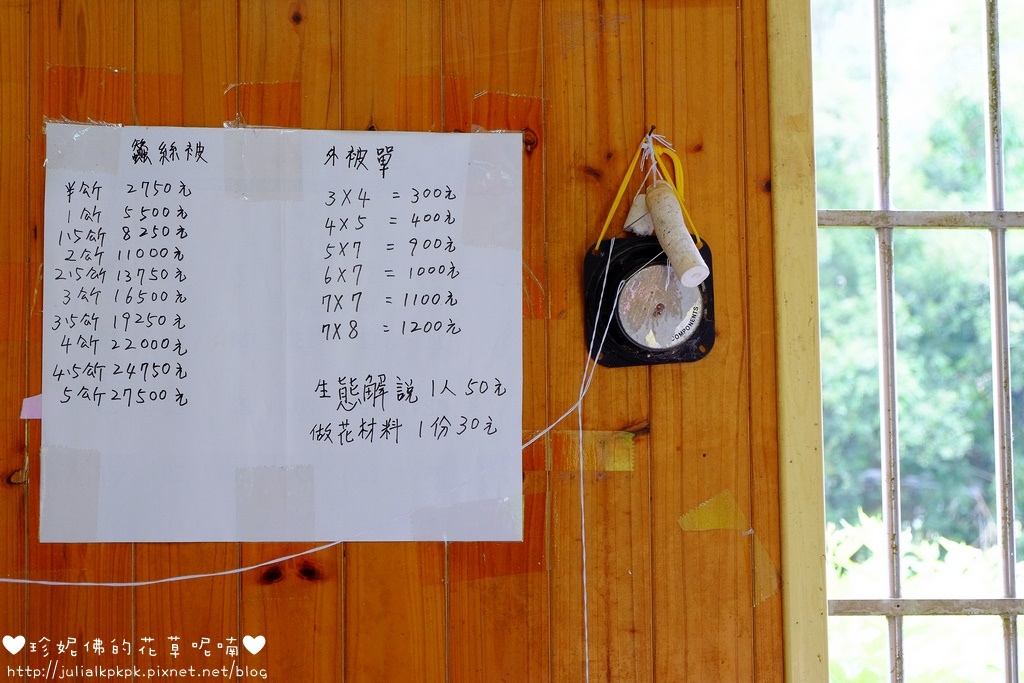 蠶絲被
半台斤 2750元
1台斤 5500元
1.5台斤 8250元
2台斤 11000元
2.5台斤 13750元
3台斤 16500元
3.5台斤 19250元
4台斤 22000元
4.5台斤 24750元
5台斤 27500元
外被單
3X4 = 300元
4X5 = 400元
5X7 = 900元
6X7 = 1000元
7X7 = 1100元
7X8 = 1200元
生態解說 1人 50元
做花材料 1份 30元
COMPONENTS
♥珍妮佛的花草呢喃♥
http://julialkpkpk.pixnet.net/blog